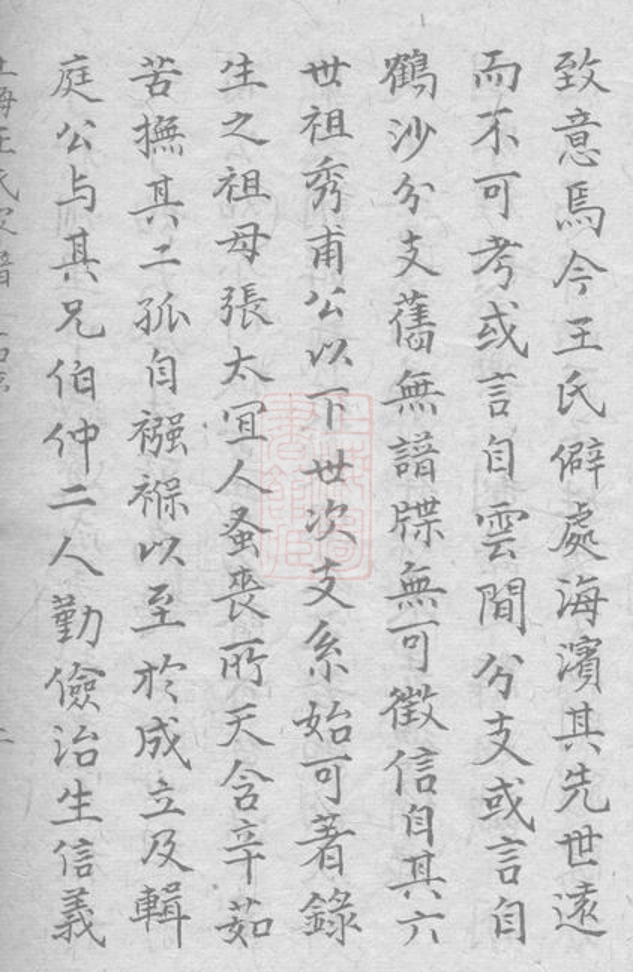 致意焉今王氏僻處海濱其先世遠
而不可考或言自雲間分支或言自
鶴沙分支舊無譜牒無可徵信自其六
世祖秀甫公以下世次支系始可著錄
生之祖母張太宜人蚤喪所天含辛茹
苦撫其二孤自襁褓以至於成立及輯
庭公与其兄伯仲二人勤儉治生信義
上海王氏家譜
二